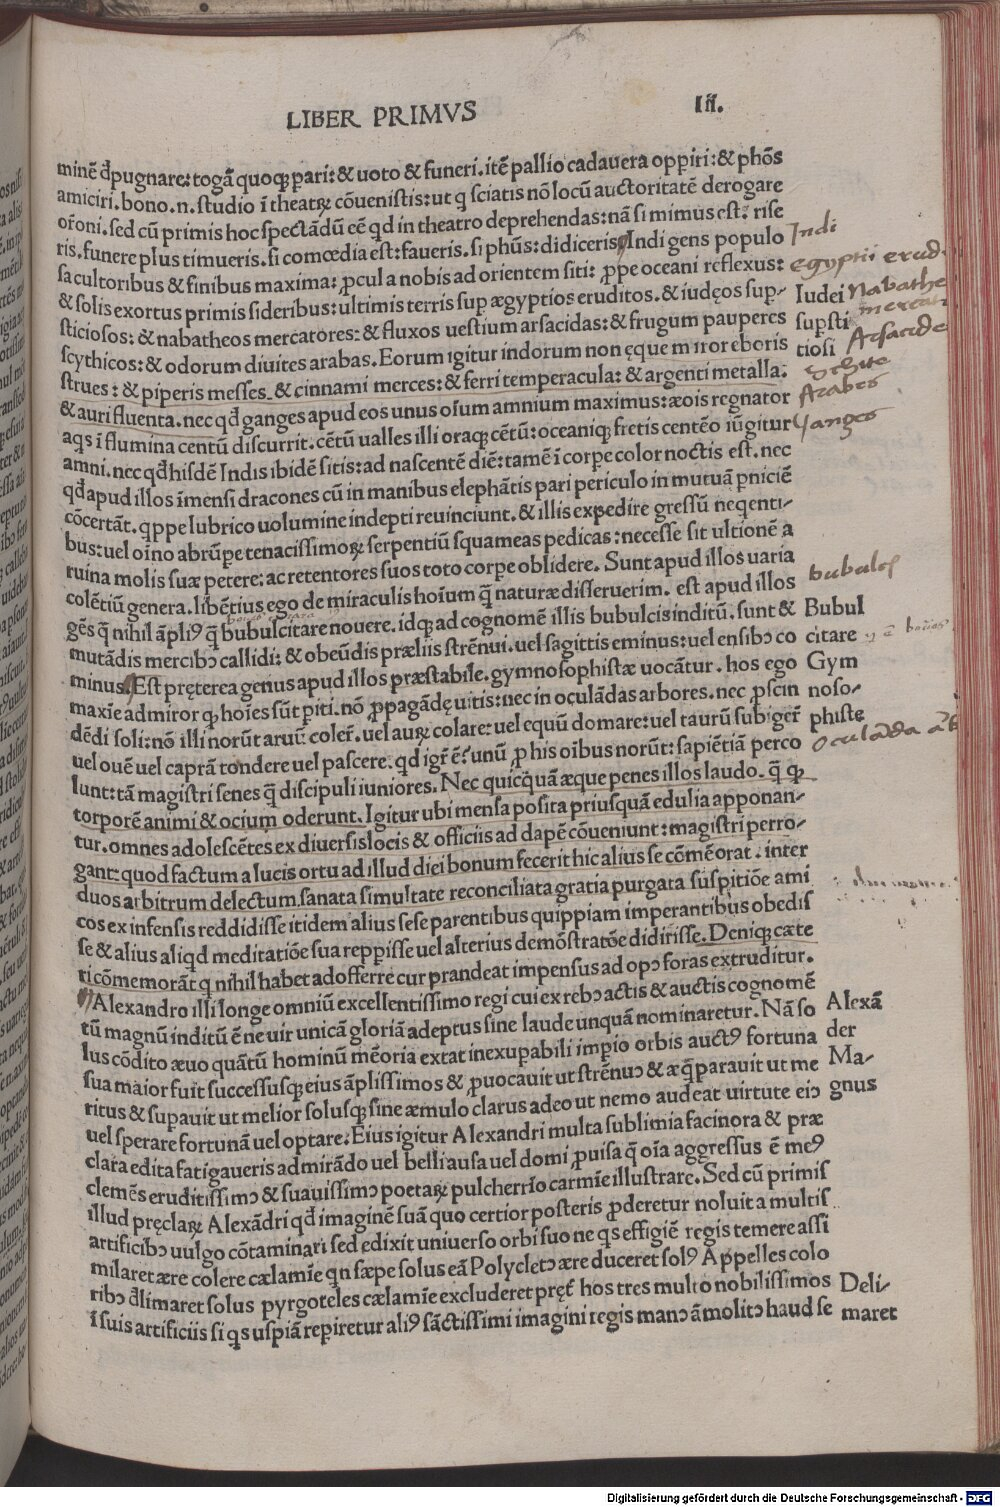 LIBER PRIMVS
III.
minẽ đpugnare: togã quoqꝫ pari: & uoto & funeri. itẽ pallio cadauera oppiri: & phōs
amiciri. bono. n. studio ī theatrꝝ cōuenistis: ut q sciatis nō locũ auctoritatẽ derogare
or̄oni. sed cũ primis hoc spectãdũ cẽ qđ in theatro deprehendas: nã si mimus est: rise
ris. funere plus timueris. si comœdia est: faueris. si phũs: didiceris Indi gens populo
sa cultoribus & finibus maxima: ꝓcul a nobis ad orientem siti: ꝓpe oceani reflexus:
& solis exortus primis sideribus: ultimis terris sup ægyptios eruditos. & iudęos sup-
sticiosos: & nabatheos mercatores: & fluxos uestium arsacidas: & frugum pauperes
scythicos: & odorum diuites arabas. Eorum igitur indorum non ęque miror eboris
strues: & piperis messes. & cinnami merces: & ferri temperacula: & argenti metalla:
& auri fluenta. nec qđ ganges apud eos unus oīum amnium maximus: æois regnator
aqs ī flumina centũ discurrit. cẽtũ ualles illi oraqꝫ cẽtũ: oceaniqꝫ fretis centẽo iũgitur
amni. nec qđ hisdẽ Indis ibidẽ sitis: ad nascentẽ diẽ: tamẽ ī corpe color noctis est. nec
qđ apud illos īmensi dracones cũ in manibus elephãtis pari periculo in mutuã pniciẽ
cōcertãt. qppe lubrico uolumine indepti reuinciunt. & illis expedire gressũ neqenti-
bus: uel oīno abrũpe tenacissimoꝝ serpentiũ squameas pedicas: necesse sit ultionẽ a
ruina molis suæ petere: ac retentores suos toto corpe oblidere. Sunt apud illos uaria
colẽtiũ genera. libẽtius ego de miraculis hoīum q̃ naturæ disseruerim. est apud illos
gẽs q̃ nihil ãpliꝰ q̃ bubulcitare nouere. idqꝫ ad cognomẽ illis bubulcis inditũ. sunt &
mutãdis mercibꝰ callidi: & obeũdis præliis strẽnui. uel sagittis eminus: uel ensibꝰ co
minus. Est pręterea genus apud illos præstabile. gymnosophistæ uocãtur. hos ego
maxīe admiror qꝫ hoīes sũt piti. nō ꝓpagãdę uitis: nec in oculãdas arbores. nec ꝓscin
dẽdi soli: nō illi norũt aruũ coler̄. uel auꝝ colare: uel equũ domare: uel taurũ subiger̄
uel ouẽ uel caprã tondere uel pascere. qd igr̄ ẽ? unũ ꝓ his oībus norũt: sapiẽtiã perco
lunt: tã magistri senes q̃ discipuli iuniores. Nec quicq̃uã æque penes illos laudo. q̃ qꝫ
torporẽ animi & ocium oderunt. Igitur ubi mensa posita priusquã edulia apponan-
tur. omnes adolescẽtes ex diuersis locis & officiis ad dapẽ cōueniunt: magistri perro-
gant: quod factum a lucis ortu ad illud diei bonum fecerit hic alius se cōmẽorat. inter
duos arbitrum delectum. sanata simultate reconciliata gratia purgata suspitiōe ami
cos ex infensis reddidisse itidem alius sese parentibus quippiam imperantibus obedis
se & alius aliqd meditatiōe sua reppisse uel alterius demōstratōe didirisse. Deniqꝫ cæte
ri cōmemorãt q nihil habet ad offerre cur prandeat impensus ad opꝰ foras extruditur.
Alexandro illi longe omniũ excellentissimo regi cui ex rebꝰ actis & auctis cognomẽ
tũ magnũ inditũ ẽ ne uir unicã gloriã adeptus sine laude unquã nominaretur. Nã so
lus cōdito æuo quãtũ hominũ mẽoria extat inexupabili impio orbis auctꝰ fortuna
sua maior fuit successusqꝫ eius ãplissimos & ꝓuocauit ut strẽnuꝰ & æq̃parauit ut me
ritus & supauit ut melior solusqꝫ sine æmulo clarus adeo ut nemo audeat uirtute eiꝰ
uel sperare fortunã uel optare. Eius igitur Alexandri multa sublimia facinora & præ
clara edita fatigaueris admirãdo uel belli ausa uel domi ꝓuisa q̃ oīa aggressus ẽ meꝰ
clemẽs eruditissimꝰ & suauissimꝰ poetaꝝ pulcherrīo carmīe illustrare. Sed cũ primis
illud pręclaꝝ Alexãdri qđ imaginẽ suã quo certior posteris ꝓderetur noluit a multis
artificibꝰ uulgo cōtaminari sed edixit uniuerso orbi suo ne qs effigiẽ regis temere assi
milaret ære colere cælamīe qn sæpe solus eã Polycletꝰ ære duceret solꝰ Appelles colo
ribꝰ đlimaret solus pyrgoteles cælamīe excluderet pręt̄ hos tres multo nobilissimos
ī suis artificiis si qs uspiã repiretur aliꝰ sãctissimi imagini regis manꝰ ãmolitꝰ haud se
Indi
egyptii erud.
Iudei
supsti
tiosi
Nabathe
mercat
Arsacide
Schite
Arabes
Ganges
bubulos
Bubul
citare
Gym
noso-
phiste
oculãda
Alexã
der
Ma-
gnus
Deli-
maret
Digitalisierung gefördert durch die Deutsche Forschungsgemeinschaft - DFG